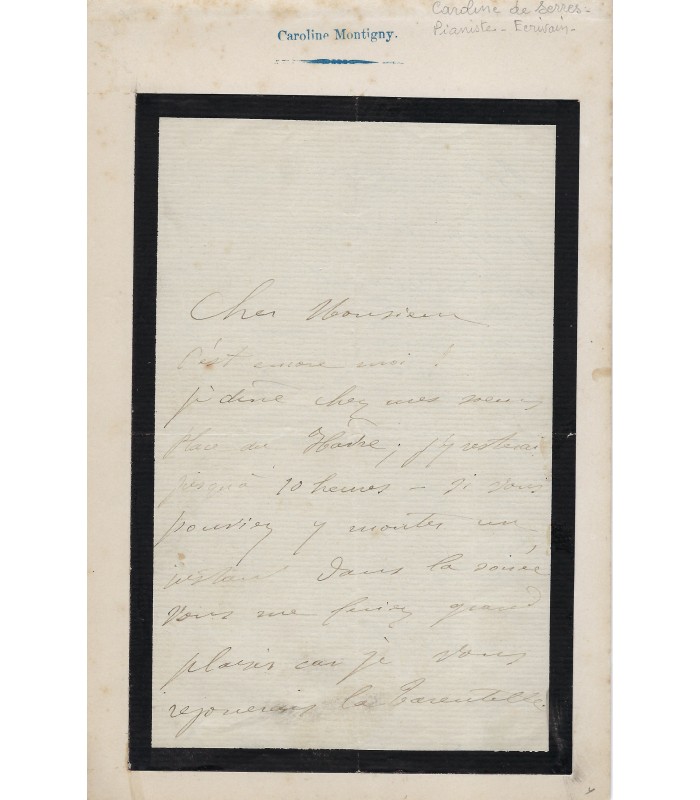 Caroline de Serres -
Pianiste - Ecrivain -
Caroline Montigny.
Cher Monsieur
C'est encore moi !
je dîne chez mes soeurs
place du Havre ; j'y resterai
jusqu'à 10 heures - si vous
pouviez y monter un
instant dans la soirée
vous me feriez grand
plaisir car je vous
rejouerais la Tarentelle.